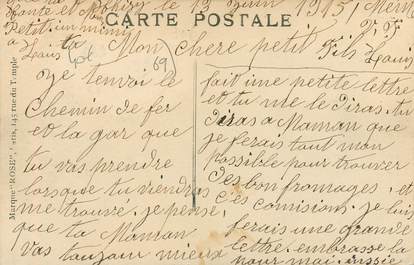 CARTE POSTALE
le 13 Juin 1915
Petit
Louis
Mon chere petit Fils Louis
69
Je tenvoi le
Chemin de fer
et la gar que
tu vas prendre
lorsque tu viendras
me trouvé. je pense
que ta Maman
vas toujour mieux
fait une petite lettre
et tu me le Diras, tu
Diras a Maman que
je ferais tout mon
possible pour trouver
des bon fromages, et
ces comisions. je lui
ferais une grande
lettre. embrasse la
pour moi
Marque "ROSE", 145 rue du Temple